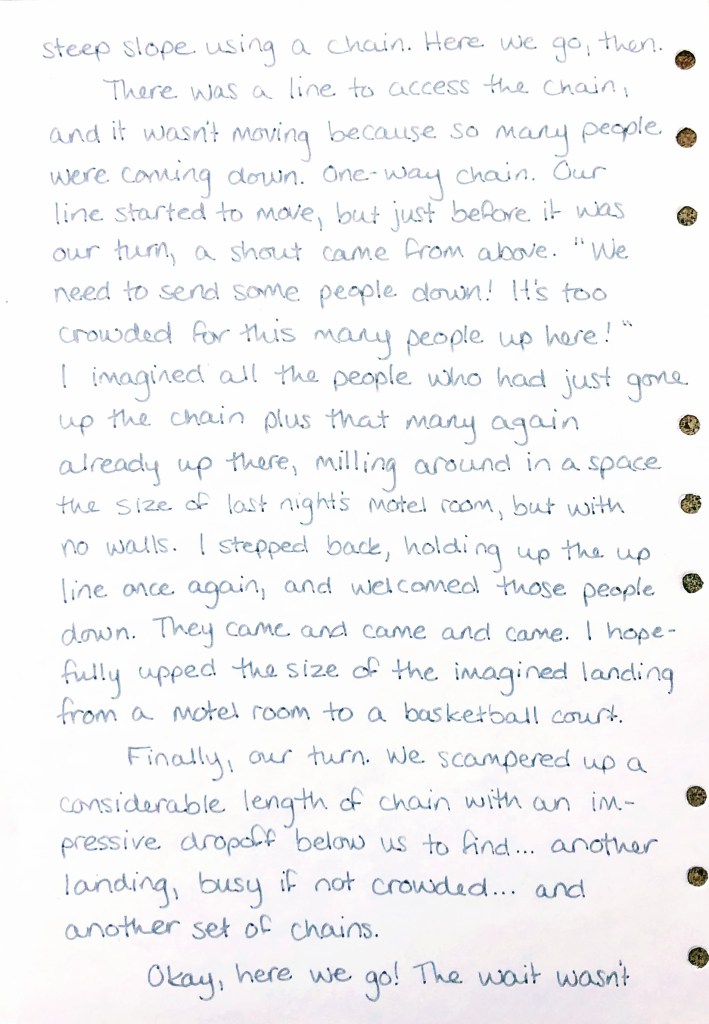 steep slope using a chain. Here we go, then.
There was a line to access the chain,
and it wasn't moving because so many people
were coming down. One-way chain. Our
line started to move, but just before it was
our turn, a shout came from above. "We
need to send some people down! It's too
crowded for this many people up here!"
I imagined all the people who had just gone
up the chain plus that many again
already up there, milling around in a space
the size of last night's motel room, but with
no walls. I stepped back, holding up the up
line once again, and welcomed those people
down. They came and came and came. I hope-
fully upped the size of the imagined landing
from a motel room to a basketball court.
Finally, our turn. We scampered up a
considerable length of chain with an im-
pressive dropoff below us to find... another
landing, busy if not crowded... and
another set of chains.
Okay, here we go! The wait wasn't